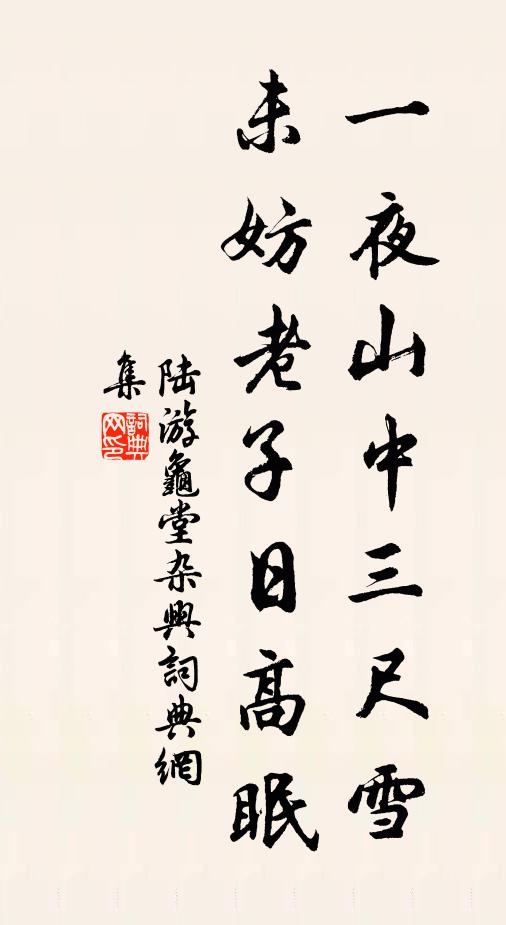 一夜山中三尺雪
未妨老子日高眠
陆游龜堂杂興詞典網
集
詞典网印